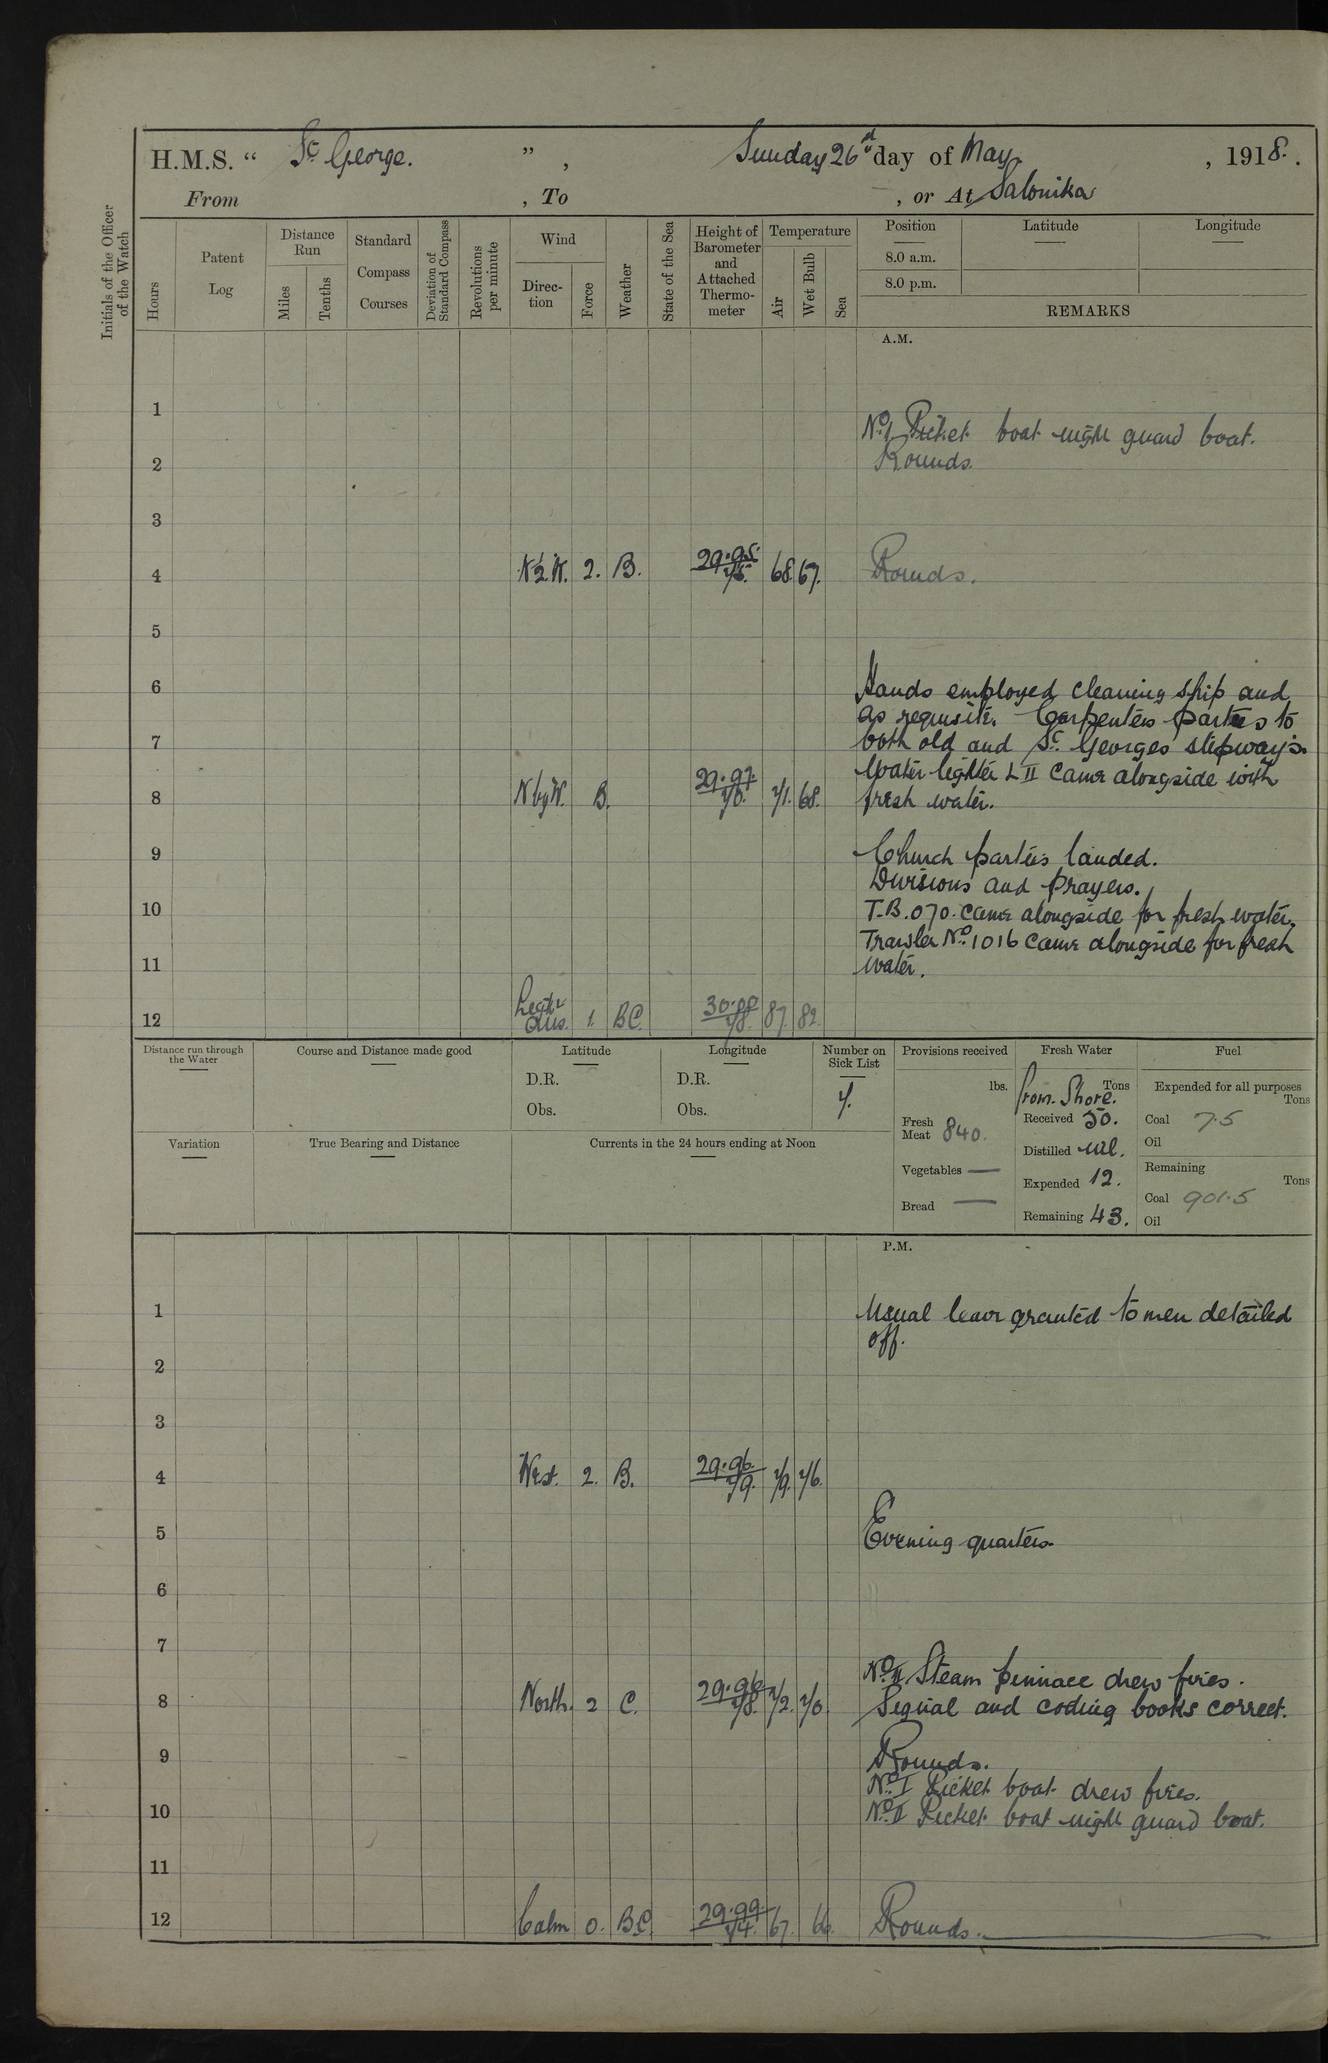 H.M.S. “ St George. ” , Sunday 26d day of May , 1918.
From , To , or At Salonika
Initials of the Officer of the Watch
Hours
Patent Log
Distance Run
Miles
Tenths
Standard Compass Courses
Deviation of Standard Compass
Revolutions per minute
Wind
Direction
Force
Weather
State of the Sea
Height of Barometer and Attached Thermometer
Temperature
Air
Wet Bulb
Sea
Position Latitude Longitude
8.0 a.m.
8.0 p.m.
REMARKS
A.M.
1
No. 1 Picket boat night guard boat.
2 Rounds.
3
4 N½W. 2. B. 29.95. 75. 68. 67. Rounds.
5
6 Hands employed cleaning ship and
as requisite. Carpenters parties to
7 both old and St. Georges slipways.
Water lighter L II came alongside with
8 N by W. B. 29.97. 70. 71. 68. fresh water.
9 Church parties landed.
Divisions and prayers.
10 T.B. 070. came alongside for fresh water.
Trawler No. 1016 came alongside for fresh
11 water.
12 Light airs. 1. BC. 30.00 78. 87. 82.
Distance run through the Water
Course and Distance made good
Latitude
D.R.
Obs.
Longitude
D.R.
Obs.
Number on Sick List
7.
Provisions received
lbs.
Fresh Meat 840.
Vegetables —
Bread —
Fresh Water
Tons
from Shore.
Received 50.
Distilled nil.
Expended 12.
Remaining 43.
Fuel
Expended for all purposes
Tons
Coal 7.5
Oil
Remaining
Tons
Coal 901.5
Oil
Variation
True Bearing and Distance
Currents in the 24 hours ending at Noon
P.M.
1 Usual leave granted to men detailed
off.
2
3
4 West. 2. B. 29.96. 79. 79. 76.
5 Evening quarters.
6
7
No. II Steam pinnace drew fires.
8 North. 2 C. 29.96 78. 72. 70. Signal and coding books correct.
9 Rounds.
No. I Picket boat drew fires.
10 No. II Picket boat night guard boat.
11
12 Calm 0. BC. 29.99 74. 67. 66. Rounds.